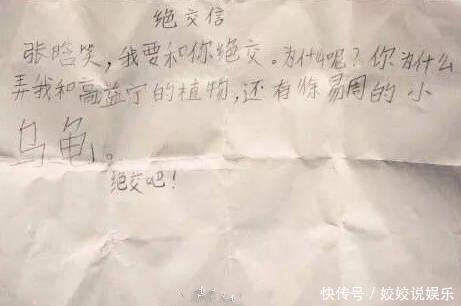 绝交信
张晗笑，我要和你绝交。为什么呢？你为什么
弄我和高益宁的植物，还有徐易周的小
乌龟。
绝交吧！
快传号／姣姣说娱乐